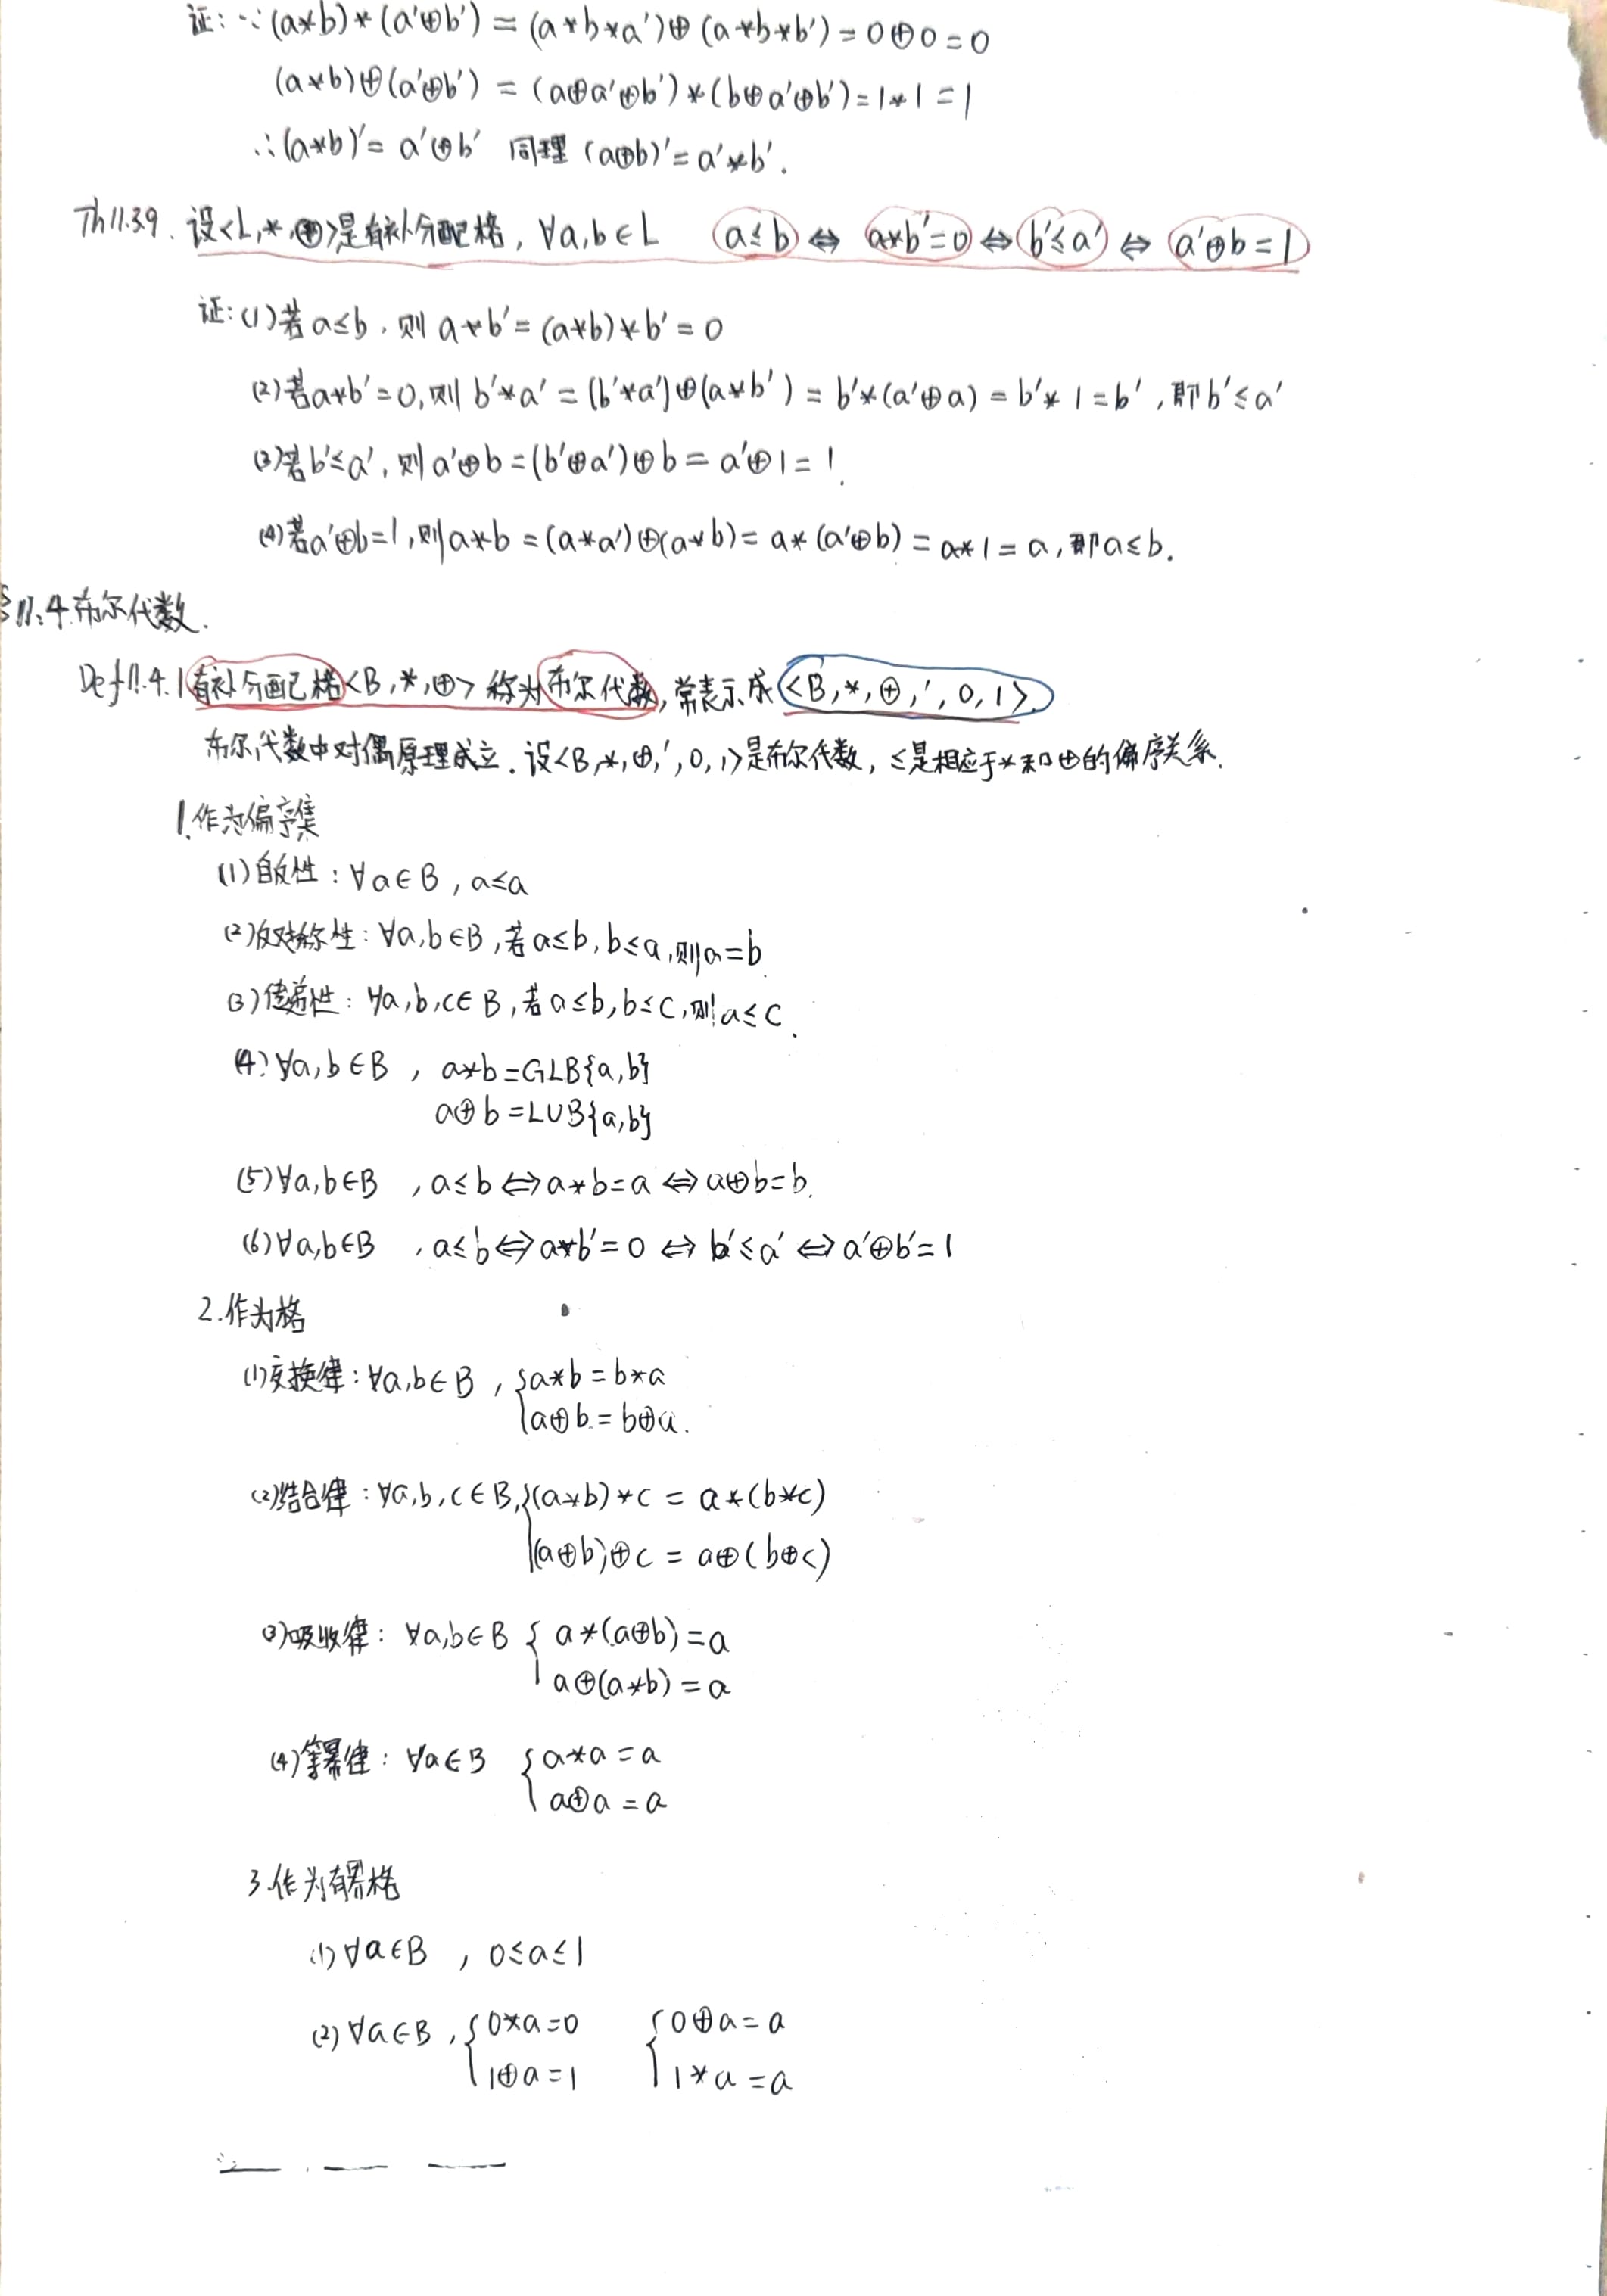 证: ∵(a*b)*(a'⊕b') = (a*b*a')⊕(a*b*b') = 0⊕0 = 0
(a*b)⊕(a'⊕b') = (a⊕a'⊕b')*(b⊕a'⊕b') = 1*1 = 1
∴(a*b)' = a'⊕b' 同理 (a⊕b)' = a'*b'.
Th11.3.9. 设<L,*,⊕>是有补分配格, ∀a,b∈L a≤b ⇔ a*b'=0 ⇔ b'≤a' ⇔ a'⊕b=1
证: (1)若a≤b, 则 a*b' = (a*b)*b' = 0
(2)若a*b'=0, 则 b'*a' = (b'*a')⊕(a*b') = b'*(a'⊕a) = b'*1 = b', 即b'≤a'
(3)若b'≤a', 则 a'⊕b = (b'⊕a')⊕b = a'⊕1 = 1.
(4)若a'⊕b=1, 则 a*b = (a*a')⊕(a*b) = a*(a'⊕b) = a*1 = a, 即a≤b.
§11.4 布尔代数.
Def11.4.1 有补分配格<B,*,⊕>称为布尔代数, 常表示成<B,*,⊕,',0,1>.
布尔代数中对偶原理成立. 设<B,*,⊕,',0,1>是布尔代数, ≤是相应于*和⊕的偏序关系.
1.作为偏序集
(1)自反性: ∀a∈B, a≤a
(2)反对称性: ∀a,b∈B, 若a≤b, b≤a, 则a=b.
(3)传递性: ∀a,b,c∈B, 若a≤b, b≤c, 则a≤c.
(4) ∀a,b∈B, a*b=GLB{a,b}
a⊕b=LUB{a,b}
(5) ∀a,b∈B, a≤b ⇔ a*b=a ⇔ a⊕b=b.
(6) ∀a,b∈B, a≤b ⇔ a*b'=0 ⇔ b'≤a' ⇔ a'⊕b'=1
2.作为格
(1)交换律: ∀a,b∈B, {a*b = b*a
a⊕b = b⊕a.
(2)结合律: ∀a,b,c∈B, {(a*b)*c = a*(b*c)
(a⊕b)⊕c = a⊕(b⊕c)
(3)吸收律: ∀a,b∈B { a*(a⊕b)=a
a⊕(a*b)=a
(4)等幂律: ∀a∈B { a*a=a
a⊕a=a
3.作为有界格
(1) ∀a∈B, 0≤a≤1
(2) ∀a∈B, {0*a=0 {0⊕a=a
1⊕a=1 1*a=a